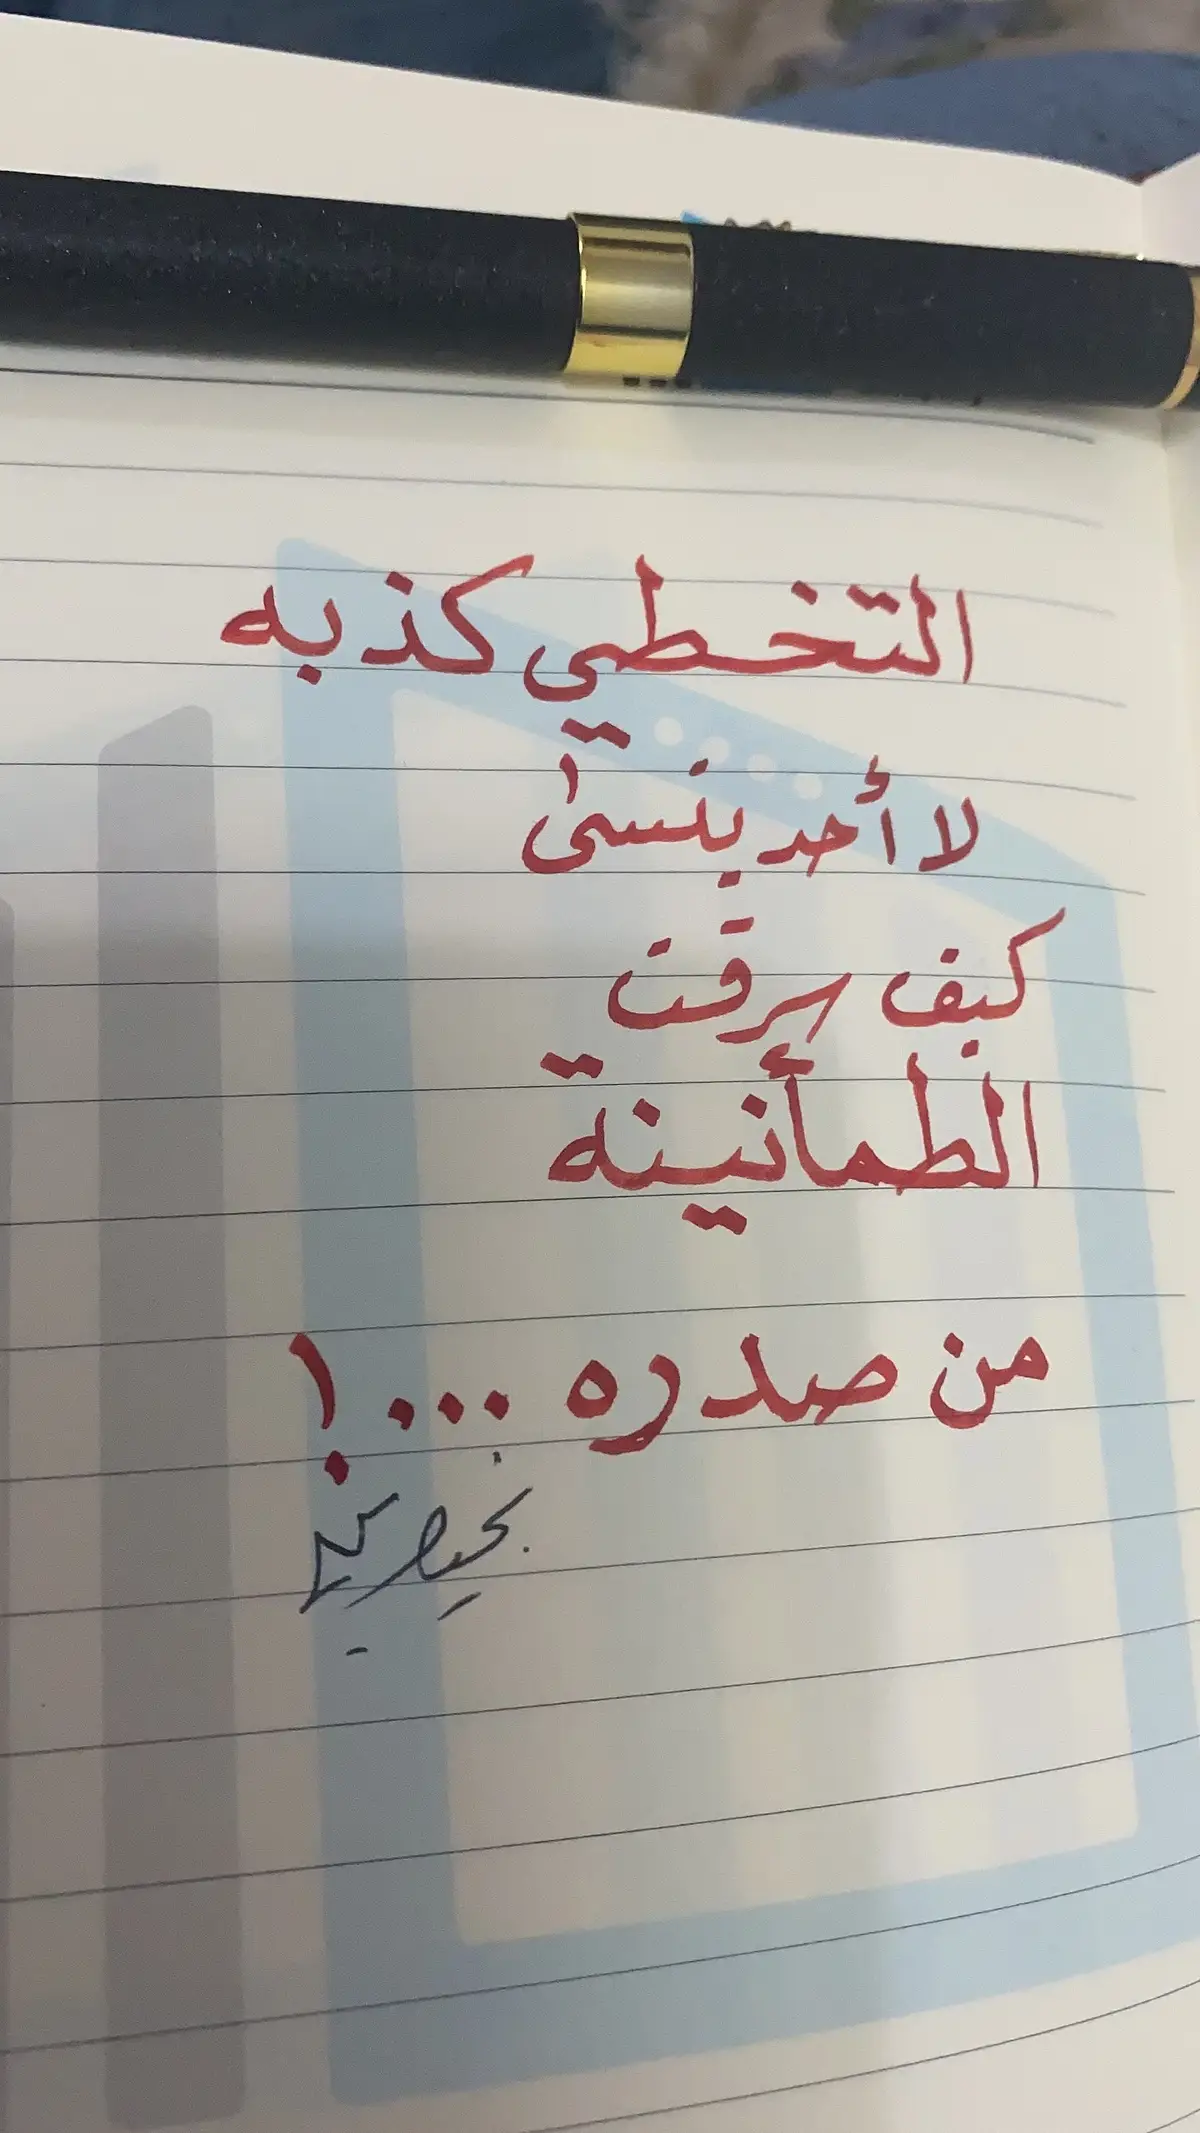 التخطي كذبه
لا أحد ينسى
كيف سرقت
الطمأنينة
من صدره ....!